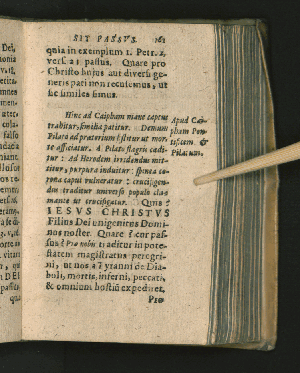 SIT PASSVS. 162
quia in exemplum 1. Petr. 2,
vers. 21 passus. Quare pro
Christo hujus aut diversi ge-
neris pati non recusemus, ut
fie similes simus.
Hinc ad Caipham manè captus
trahitur, similia patitur. Demum
Pilato ad prætorium sistitur ut mor-
te afficiatur. A Pilato flagris cædi-
tur: Ad Herodem irridendus mit-
titur, purpura induitur: spinea co-
rona caput vulneratur: crucifigen-
dus traditur universo populo cla-
mante ut crucifigatur. Quis?
IESVS CHRISTVS
Filius Dei unigenitus Domi-
nus noster. Quare? cur pas-
sus? Pro nobis traditur in pote-
statem magistratus peregri-
ni, ut nos à tyranni de Dia-
boli, mortis, inferni, peccati,
& omnium hostiū expediret.
Pro
Apud Cai-
pham Pon-
tificem &
Pilatum.